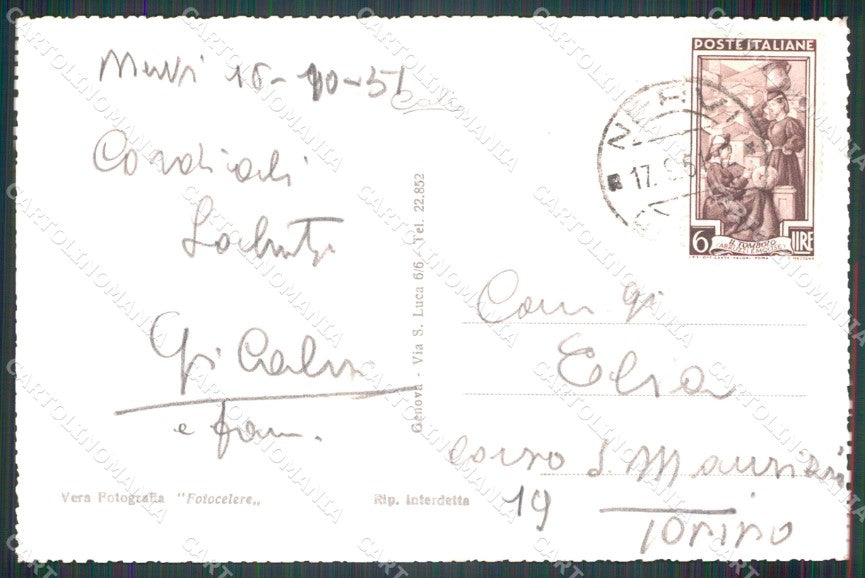 Nervi 16-10-51
Cordiali
Saluti
e fam.
Genova - Via S. Luca 6/6 - Tel. 22.852
Vera Fotografia "Fotocelere„
Rip. Interdetta
NERVI
17.
POSTE ITALIANE
6 LIRE
IL TOMBOLO
(ABRUZZI E MOLISE)
Elia
corso S. Maurizio
19
Torino
CARTOLINOMANIA